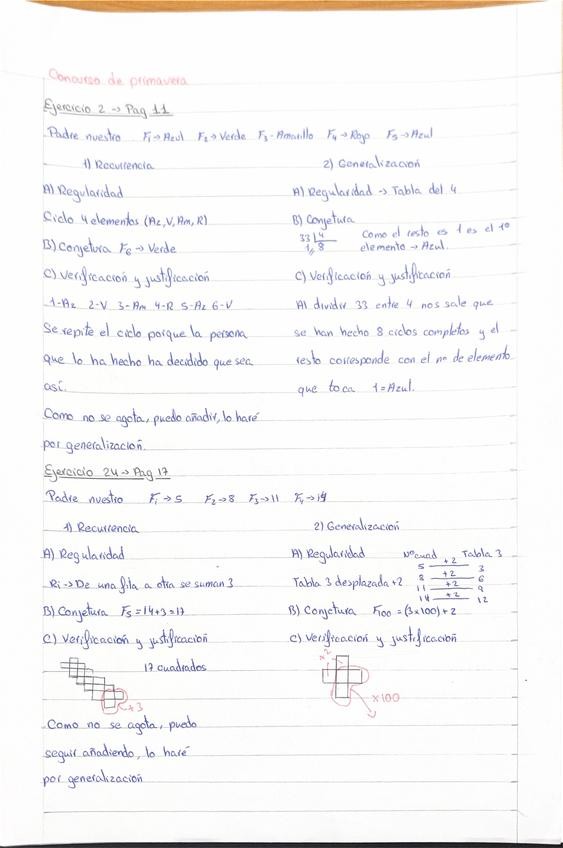 Concurso de primavera
Ejercicio 2 → Pag 11
Padre nuestro F₁→Azul F₂→Verde F₃-Amarillo F₄→Rojo F₅→Azul
1) Recurrencia
A) Regularidad
Ciclo 4 elementos (Az, V, Am, R)
B) Conjetura F₆ → Verde
C) Verificación y justificación
1-Az 2-V 3-Am 4-R 5-Az 6-V
Se repite el ciclo porque la persona
que lo ha hecho ha decidido que sea
así.
Como no se agota, puedo añadir, lo haré
por generalización.
2) Generalización
A) Regularidad → Tabla del 4
B) Conjetura
33 | 4
1 8
Como el resto es 1 es el 1º
elemento → Azul.
C) Verificación y justificación
Al dividir 33 entre 4 nos sale que
se han hecho 8 ciclos completos y el
resto corresponde con el nº de elemento
que toca 1=Azul.
Ejercicio 24 → Pag 17
Padre nuestro F₁→5 F₂→8 F₃→11 F₄→14
1) Recurrencia
A) Regularidad
R₁→De una fila a otra se suman 3
B) Conjetura F₅=14+3=17
C) Verificación y justificación
17 cuadrados
+3
Como no se agota, puedo
seguir añadiendo, lo haré
por generalización
2) Generalización
A) Regularidad Nºcuad +2 Tabla 3
5 3
8 +2 6
11 +2 9
14 +2 12
Tabla 3 desplazada +2
B) Conjetura F₁₀₀ = (3x100)+2
C) Verificación y justificación
+2
x100